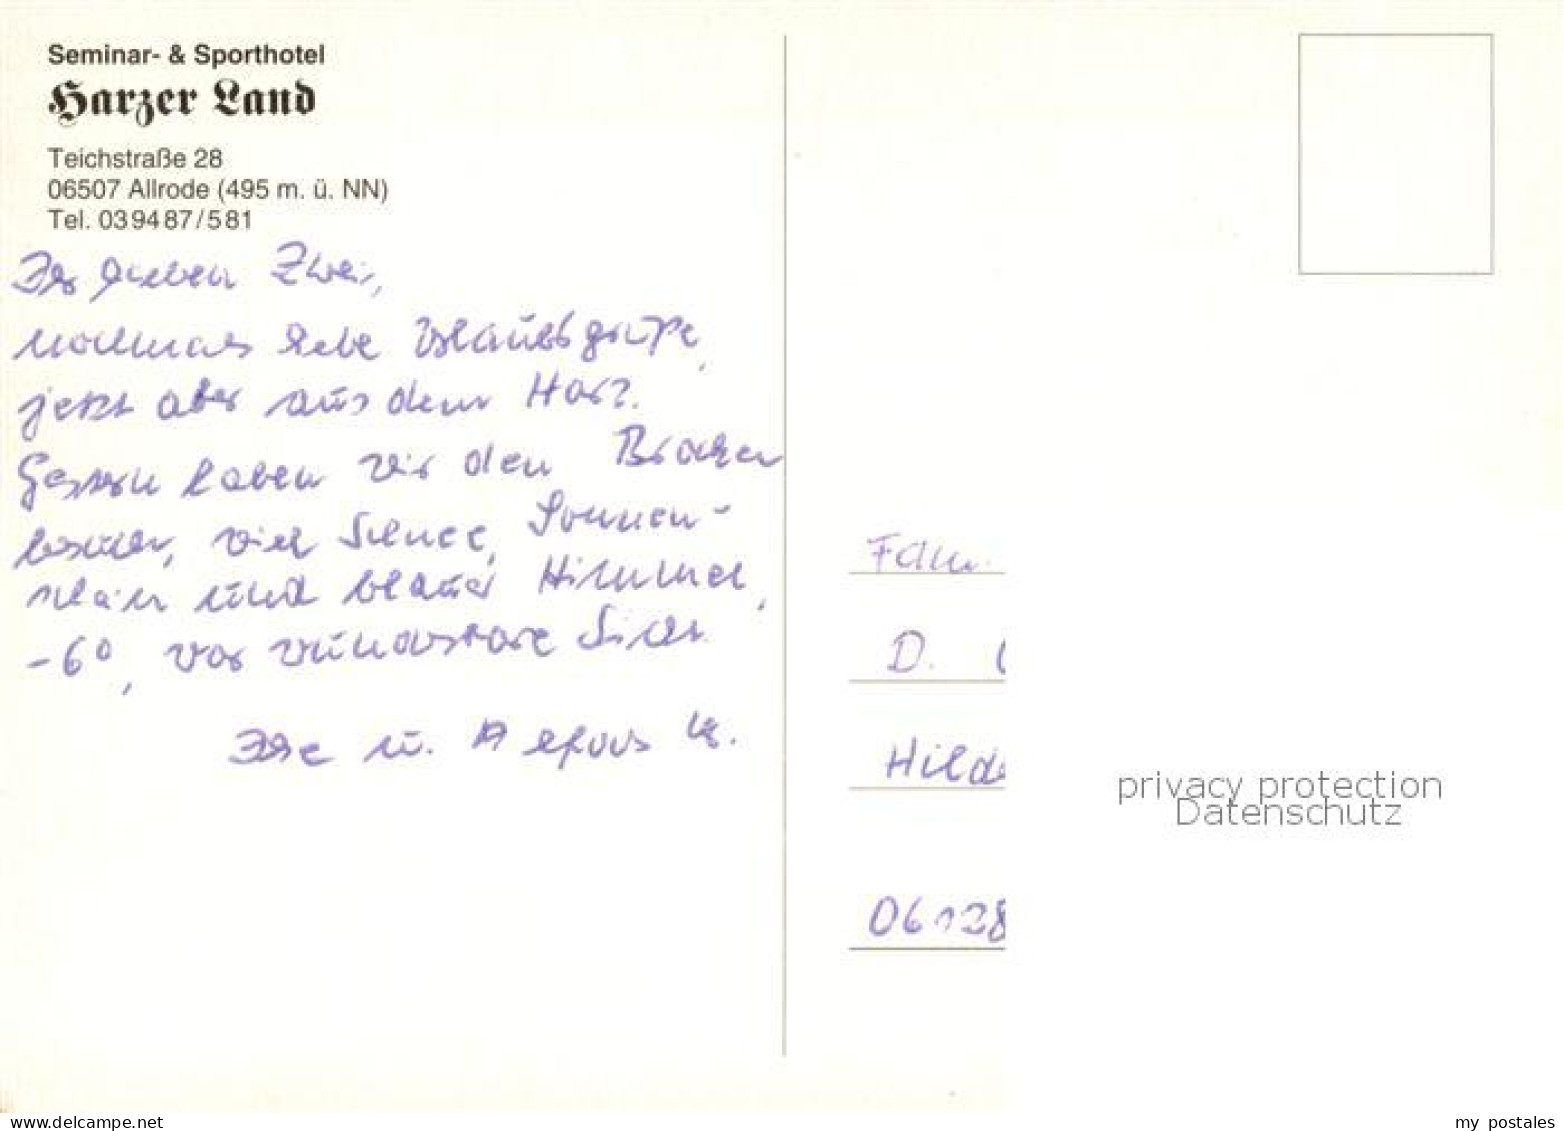 Seminar- & Sporthotel
Harzer Land
Teichstraße 28
06507 Allrode (495 m. ü. NN)
Tel. 039487/581
Ihr lieben Zwei,
nochmals liebe Urlaubsgrüße,
jetzt aber aus dem Harz.
Gestern haben wir den Brocken
besucht, viel Schnee, Sonnen-
schein und blauer Himmel,
-6°, war wunderbare Sicht.
Ilse u. Alfons
Fam.
D.
Hilde
06128
privacy protection
Datenschutz
www.delcampe.net
my_postales